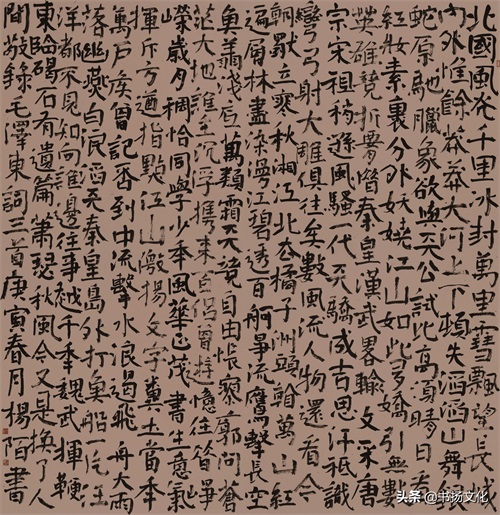 北國風光千里冰封萬里雪飄望長城
内外惟餘莽莽大河上下頓失滔滔山舞銀
蛇原馳臘象欲與天公試比高須晴日看
紅妝素裹分外妖嬈江山如此多嬌引無數
英雄競折腰惜秦皇漢武畧輸文采唐
宗宋祖稍遜風騷一代天驕成吉思汗祇識
彎弓射大雕俱往矣數風流人物還看今
朝獨立寒秋湘江北去橘子洲頭看萬山紅
遍層林盡染漫江碧透百舸爭流鷹擊長空
魚翔淺底萬類霜天競自由悵寥廓問蒼
茫大地誰主沉浮攜來百侶曾遊憶往昔崢
嶸歲月稠恰同學少年風華正茂書生意氣
揮斥方遒指點江山激揚文字糞土當年
萬戶侯曾記否到中流擊水浪遏飛舟大雨
落幽燕白浪滔天秦皇島外打魚船一片汪
洋都不見知向誰邊往事越千年魏武揮鞭
東臨碣石有遺篇蕭瑟秋風今又是換了人
間敬錄毛澤東詞三首庚寅春月楊陌書
头条 @书扬文化